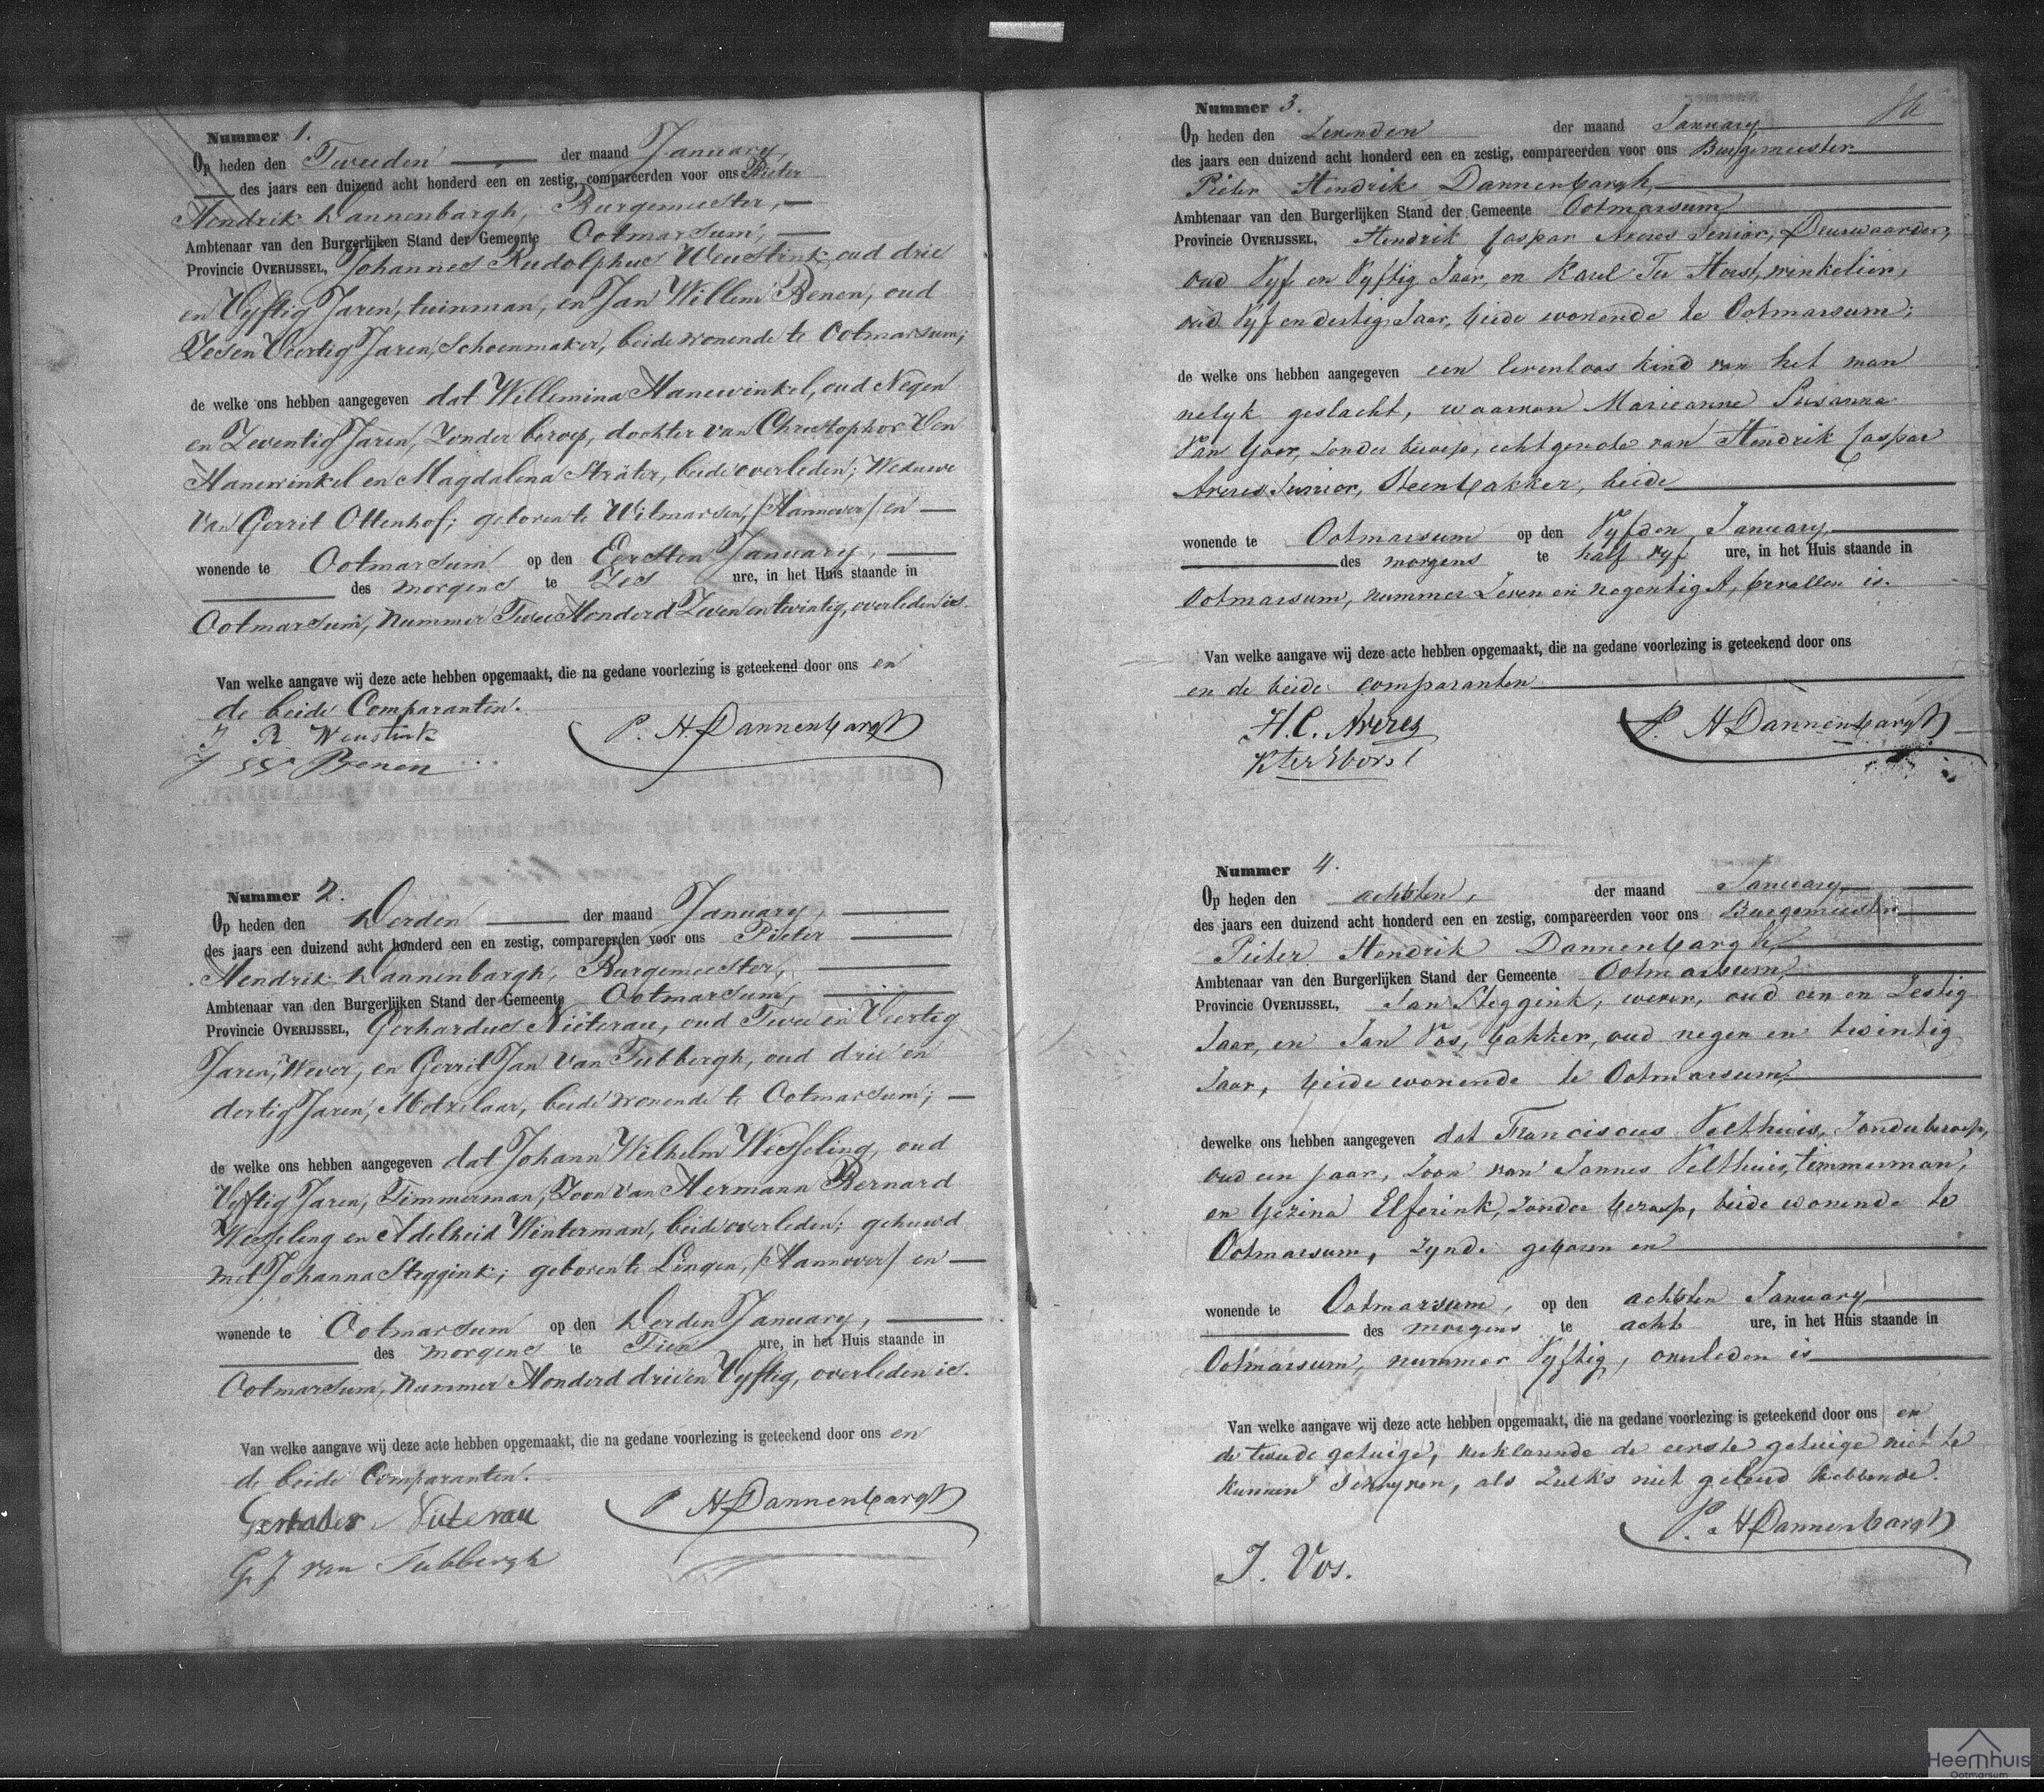 Nummer 1.
Op heden den Tweeden der maand January,
des jaars een duizend acht honderd een en zestig, compareerden voor ons Pieter
Hendrik Dannenbargh, Burgemeester,
Ambtenaar van den Burgerlijken Stand der Gemeente Ootmarsum,
Provincie OVERIJSSEL, Johannes Rudolphus Weustink, oud drie
en Vyftig Jaren, tuinman, en Jan Willem Benen, oud
Zes en Veertig Jaren, Schoenmaker, beide wonende te Ootmarsum;
de welke ons hebben aangegeven dat Willemina Hanewinkel, oud Negen
en Zeventig Jaren, Zonder beroep, dochter van Christophor
Hanewinkel en Magdalena Sträter, beide overleden; Weduwe
van Gerrit Ottenhof; geboren te Wilmarsen, /Hannover/ en
wonende te Ootmarsum op den Eersten January,
des morgens te Zes ure, in het Huis staande in
Ootmarsum, Nummer Twee Honderd Zeven en twintig, overleden is.
Van welke aangave wij deze acte hebben opgemaakt, die na gedane voorlezing is geteekend door ons en
de beide Comparanten.
J R Weustink
P. H Dannenbargh
J W Benen
Nummer 2.
Op heden den Derden der maand January,
des jaars een duizend acht honderd een en zestig, compareerden voor ons Pieter
Hendrik Dannenbargh, Burgemeester,
Ambtenaar van den Burgerlijken Stand der Gemeente Ootmarsum,
Provincie OVERIJSSEL, Gerhardus Niiterau, oud Twee en Veertig
Jaren, Wever, en Gerrit Jan van Tubbergh, oud drie en
dertig Jaren, Metzelaar, beide wonende te Ootmarsum;
de welke ons hebben aangegeven dat Johann Wilhelm Wesseling, oud
Vyftig Jaren, Timmerman, Zoon van Hermann Bernard
Wesseling en Adelheid Winterman, beide overleden; gehuwd
met Johanna Steggink; geboren te Lingen, /Hannover/ en
wonende te Ootmarsum op den Derden January,
des morgens te Tien ure, in het Huis staande in
Ootmarsum, Nummer Honderd drie en Vyftig, overleden is.
Van welke aangave wij deze acte hebben opgemaakt, die na gedane voorlezing is geteekend door ons en
de beide Comparanten.
P H Dannenbargh
G J van Tubbergh
Nummer 3.
Op heden den Zevenden der maand January
des jaars een duizend acht honderd een en zestig, compareerden voor ons Burgemeester
Pieter Hendrik Dannenbargh,
Ambtenaar van den Burgerlijken Stand der Gemeente Ootmarsum,
Provincie OVERIJSSEL, Hendrik Caspar Averes Senior, Deurwaarder,
oud Vyf en Vyftig Jaar, en Karel Ter Horst, winkelier,
oud Vyf en dertig Jaar, beide wonende te Ootmarsum;
de welke ons hebben aangegeven een levenloos kind van het man
nelyk geslacht, waarvan Marieanne Susanna
Van Goor, zonder beroep, echtgenote van Hendrik Caspar
Averes Junior, Steenbakker, beide
wonende te Ootmarsum op den Vyfden, January,
des morgens te half vyf ure, in het Huis staande in
Ootmarsum, nummer Zeven en negentig A, bevallen is.
Van welke aangave wij deze acte hebben opgemaakt, die na gedane voorlezing is geteekend door ons
en de beide comparanten
H. C. Averes
P. H Dannenbargh
K ter Horst
Nummer 4.
Op heden den achtsten, der maand January,
des jaars een duizend acht honderd een en zestig, compareerden voor ons Burgemeester
Pieter Hendrik Dannenbargh,
Ambtenaar van den Burgerlijken Stand der Gemeente Ootmarsum,
Provincie OVERIJSSEL, Jan Steggink, wever, oud een en Zestig
Jaar, en Jan Vos, bakker, oud negen en twintig
Jaar, beide wonende te Ootmarsum,
dewelke ons hebben aangegeven dat Franciscus Velthuis, Zonder beroep,
oud een jaar, Zoon van Jannes Velthuis, timmerman,
en Gezina Elferink, zonder beroep, beide wonende te
Ootmarsum, zynde geboren en
wonende te Ootmarsum, op den achtsten January
des morgens te acht ure, in het Huis staande in
Ootmarsum, nummer Vyftig, overleden is
Van welke aangave wij deze acte hebben opgemaakt, die na gedane voorlezing is geteekend door ons en
de tweede getuige, verklarende de eerste getuige niet te
kunnen Schryven, als Zulks niet geleerd hebbende.
P. H Dannenbargh
J. Vos.
Heemhuis
Ootmarsum